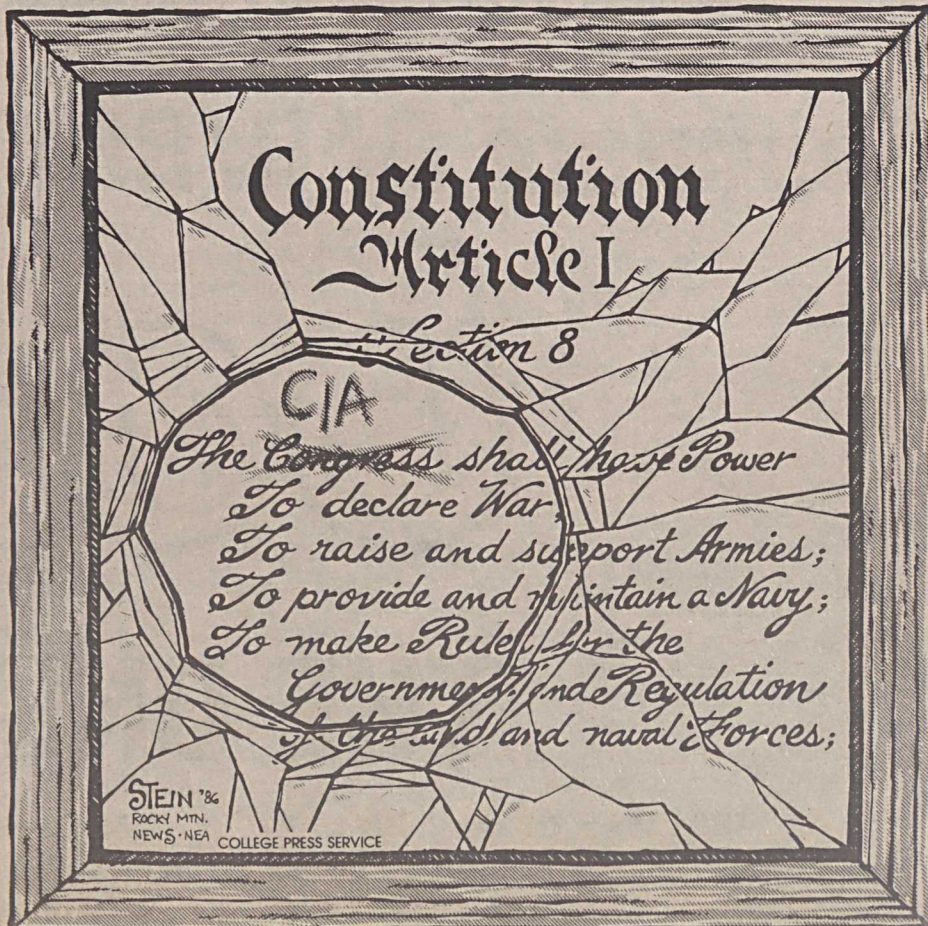 Constitution
Article I
Section 8
CIA
The Congress shall have Power
To declare War;
To raise and support Armies;
To provide and maintain a Navy;
To make Rules for the
Government and Regulation
of the land and naval Forces;
STEIN '86
ROCKY MTN.
NEWS·NEA
COLLEGE PRESS SERVICE